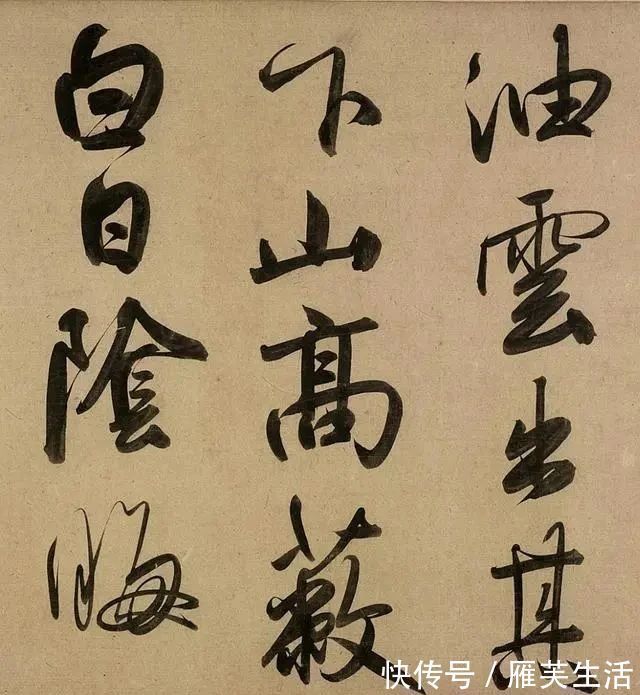 油雲出其
下山高蔽
白日陰晦
快传号 / 雁芙生活